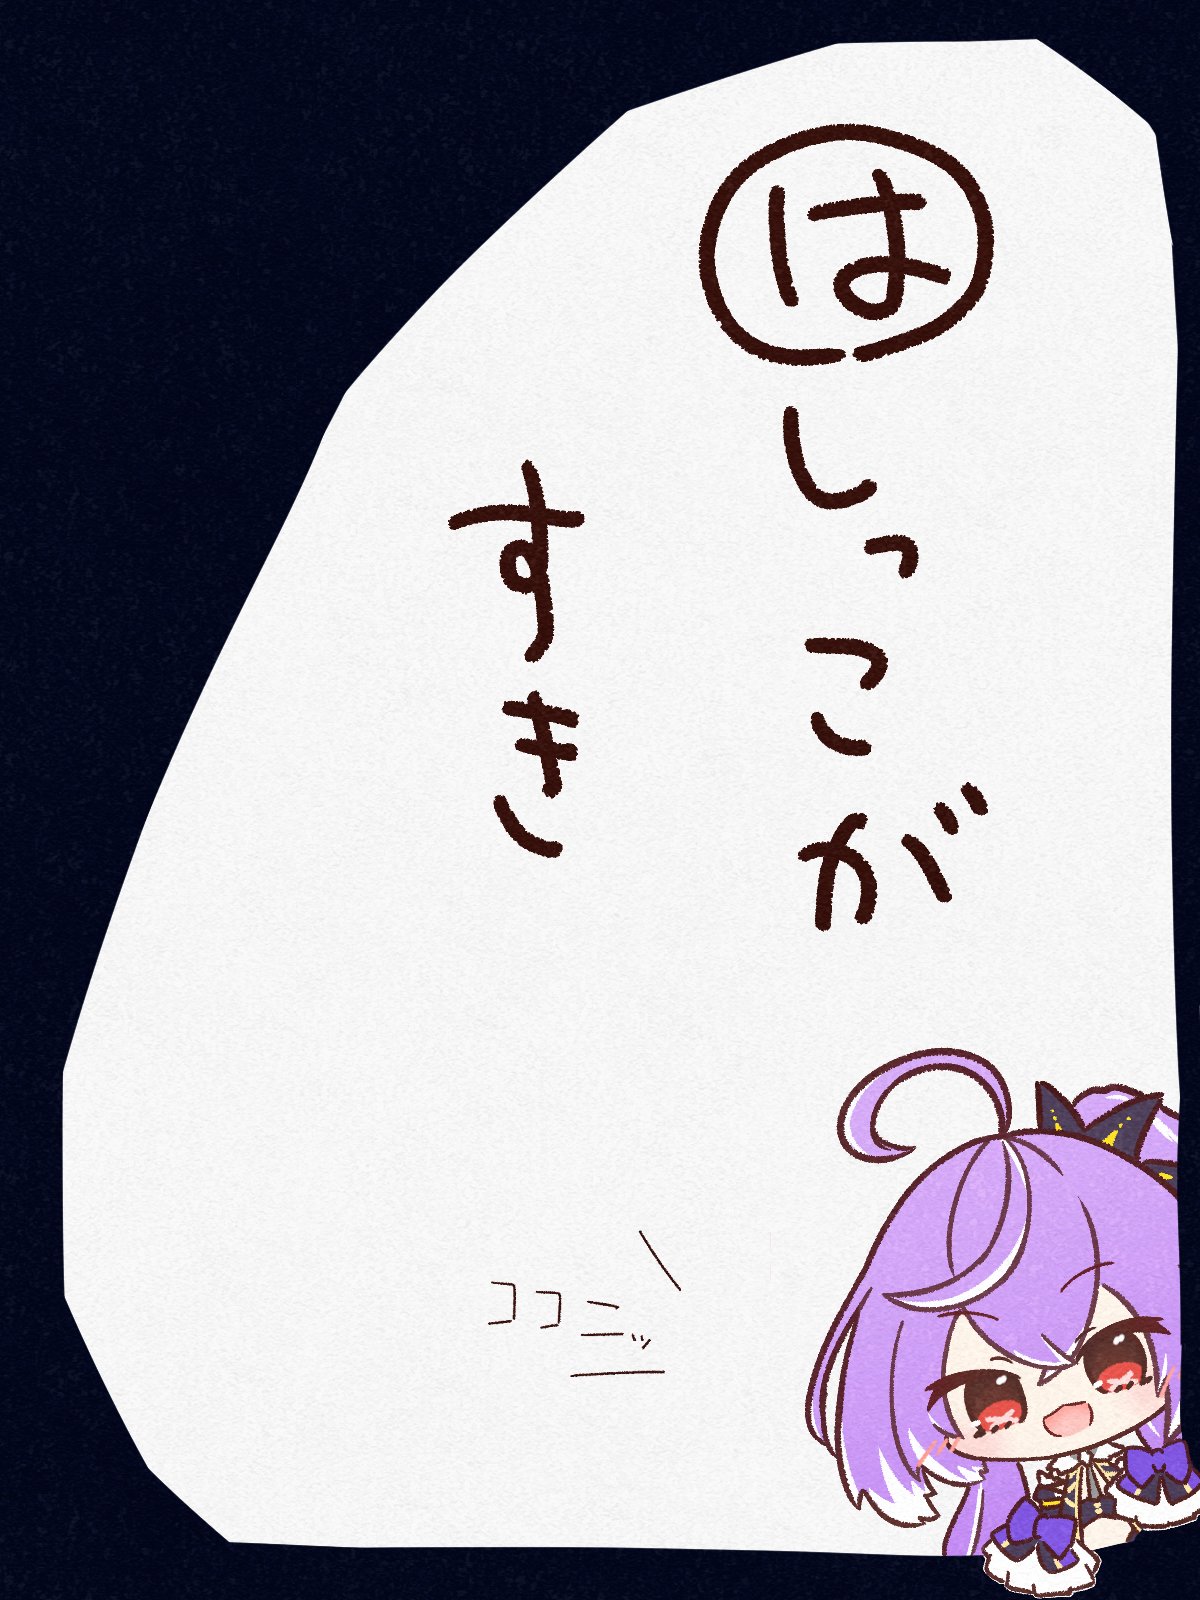 はしっこが
すき
ココニッ